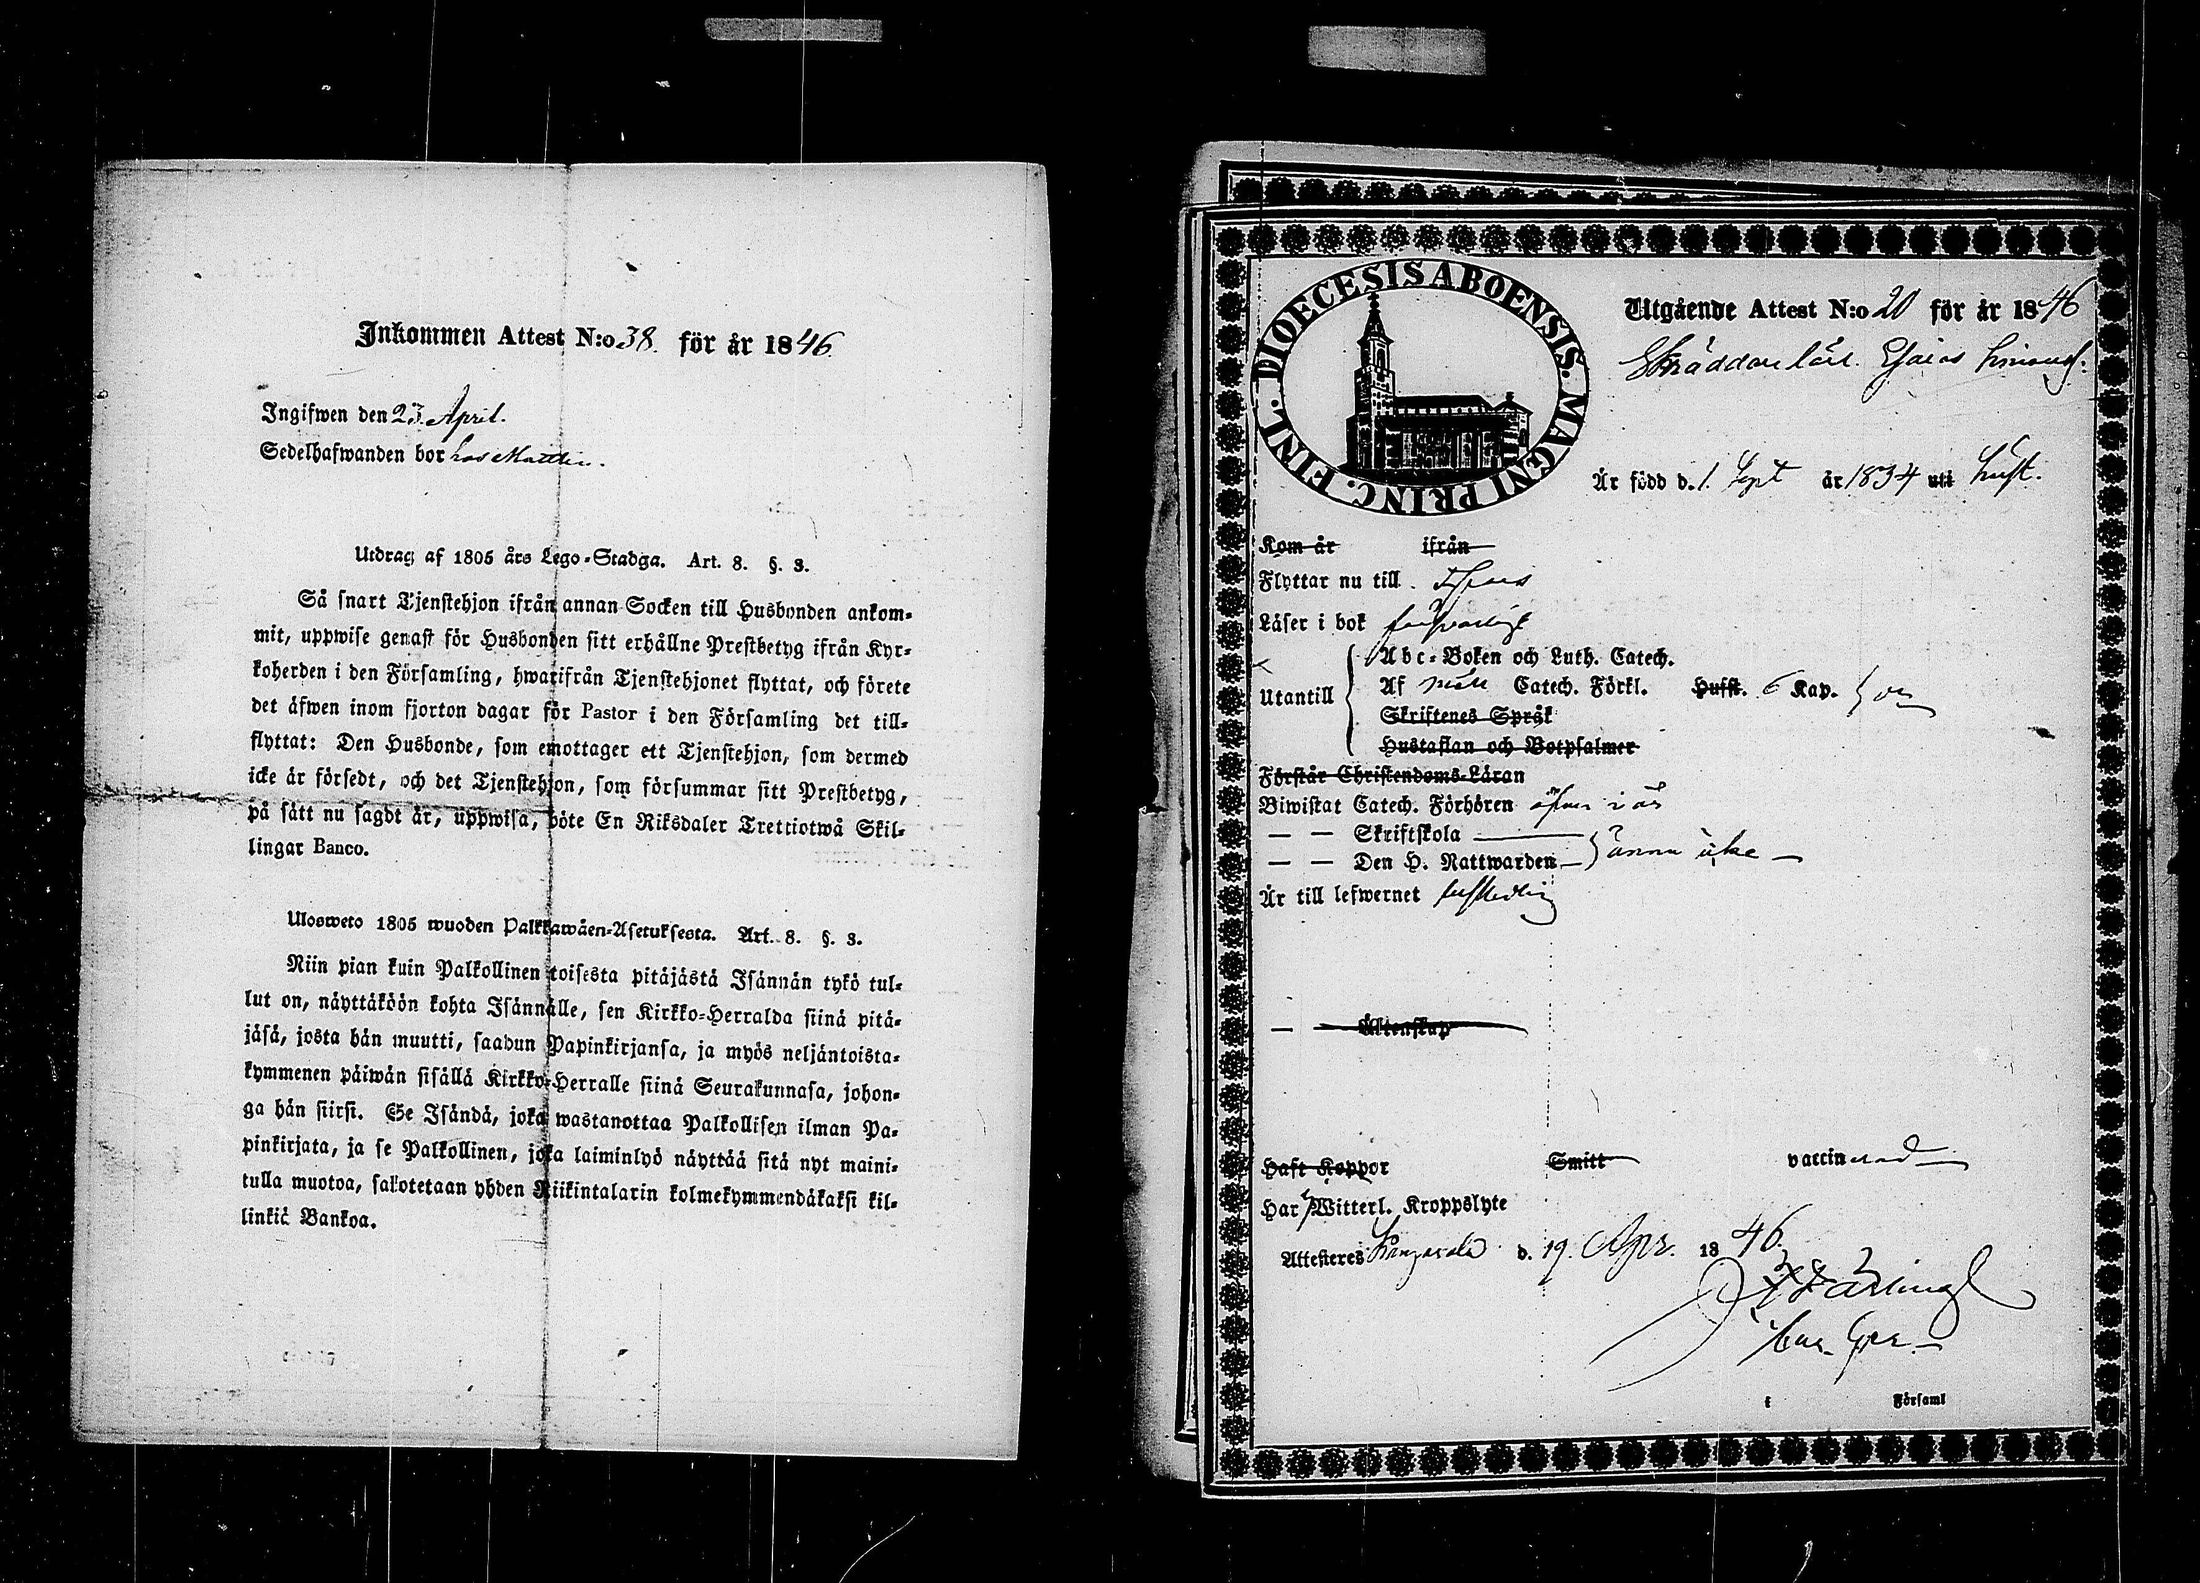 Inkommen Attest N:o 38. för år 1846.
Ingifwen den 23. April.
Sedelhafwanden bor hos
Utdrag af 1805 års Lego-Stadga. Art. 8. §. 3.
Så snart Tjenstehjon ifrån annan Socken till Husbonden ankom-
mit, uppwise genast för Husbonden sitt erhållne Prestbetyg ifrån Kyr-
koherden i den Församling, hwarifrån Tjenstehjonet flyttat, och förete
det äfwen inom fjorton dagar för Pastor i den Församling det till-
flyttat: Den Husbonde, som emottager ett Tjenstehjon, som dermed
icke är försedt, och det Tjenstehjon, som försummar sitt Prestbetyg,
på sätt nu sagdt är, uppwisa, böte En Riksdaler Trettiotwå Skil-
lingar Banco.
Ulosweto 1805 wuoden Palkkawäen-Asetuksesta. Art. 8. §. 3.
Niin pian kuin Palkollinen toisesta pitäjästä Isännän tykö tul-
lut on, näyttäköön kohta Isännälle, sen Kirkko-Herralda siinä pitä-
jäsä, josta hän muutti, saadun Papinkirjansa, ja myös neljäntoista-
kymmenen päiwän sisällä Kirkko-Herralle siinä Seurakunnasa, johon-
ga hän siirsi. Se Isändä, joka wastanottaa Palkollisen ilman Pa-
pinkirjata, ja se Palkollinen, joka laiminlyö näyttää sitä nyt maini-
tulla muotoa, sakotetaan yhden Riikintalarin kolmekymmendäkaksi kil-
linkiä Bankoa.
DIOECESIS ABOENSIS. MAGNI PRINC. FINL.
Utgående Attest N:o 20 för år 1846
Skräddare lärl. Esaias
Är född d. 1 Sept år 1834 uti
Kom år ifrån
Flyttar nu till
Läser i bok
Abc-Boken och Luth. Catech.
Utantill Af Catech. Förkl. Hufst. 6 Kap.
Skriftenes Språk
Hustaflan och Botpsalmer
Förstår Christendoms-Läran
Biwistat Catech. Förhören i år
— — Skriftskola
— — Den H. Nattwarden ännu icke
Är till lefwernet
— Äktenskap
Haft Koppor Smitt vaccinerad
Har Witterl. Kroppslyte
Attesteras Kangasala d. 19. Apr. 1846.
i Församl